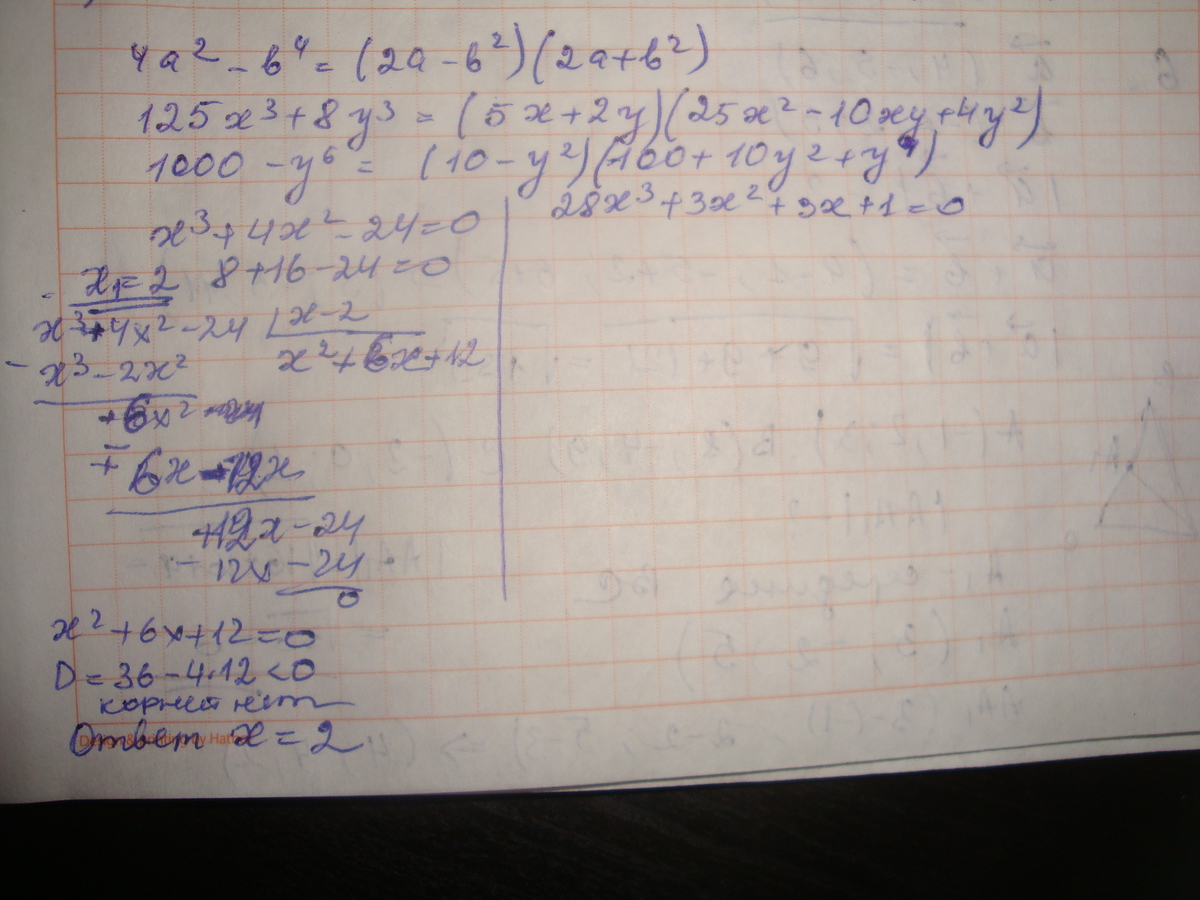 4a² - b⁴ = (2a - b²)(2a + b²)
125x³ + 8y³ = (5x + 2y)(25x² - 10xy + 4y²)
1000 - y⁶ = (10 - y²)(100 + 10y² + y⁴)
x³ + 4x² - 24 = 0
x₁ = 2 8 + 16 - 24 = 0
x³ + 4x² - 24 | x - 2
- x³ - 2x² x² + 6x + 12
+6x² - 24
6x - 12x
+12x - 24
- 12x - 24
0
x² + 6x + 12 = 0
D = 36 - 4·12 < 0
корней нет
Ответ x = 2
28x³ + 3x² + 3x + 1 = 0